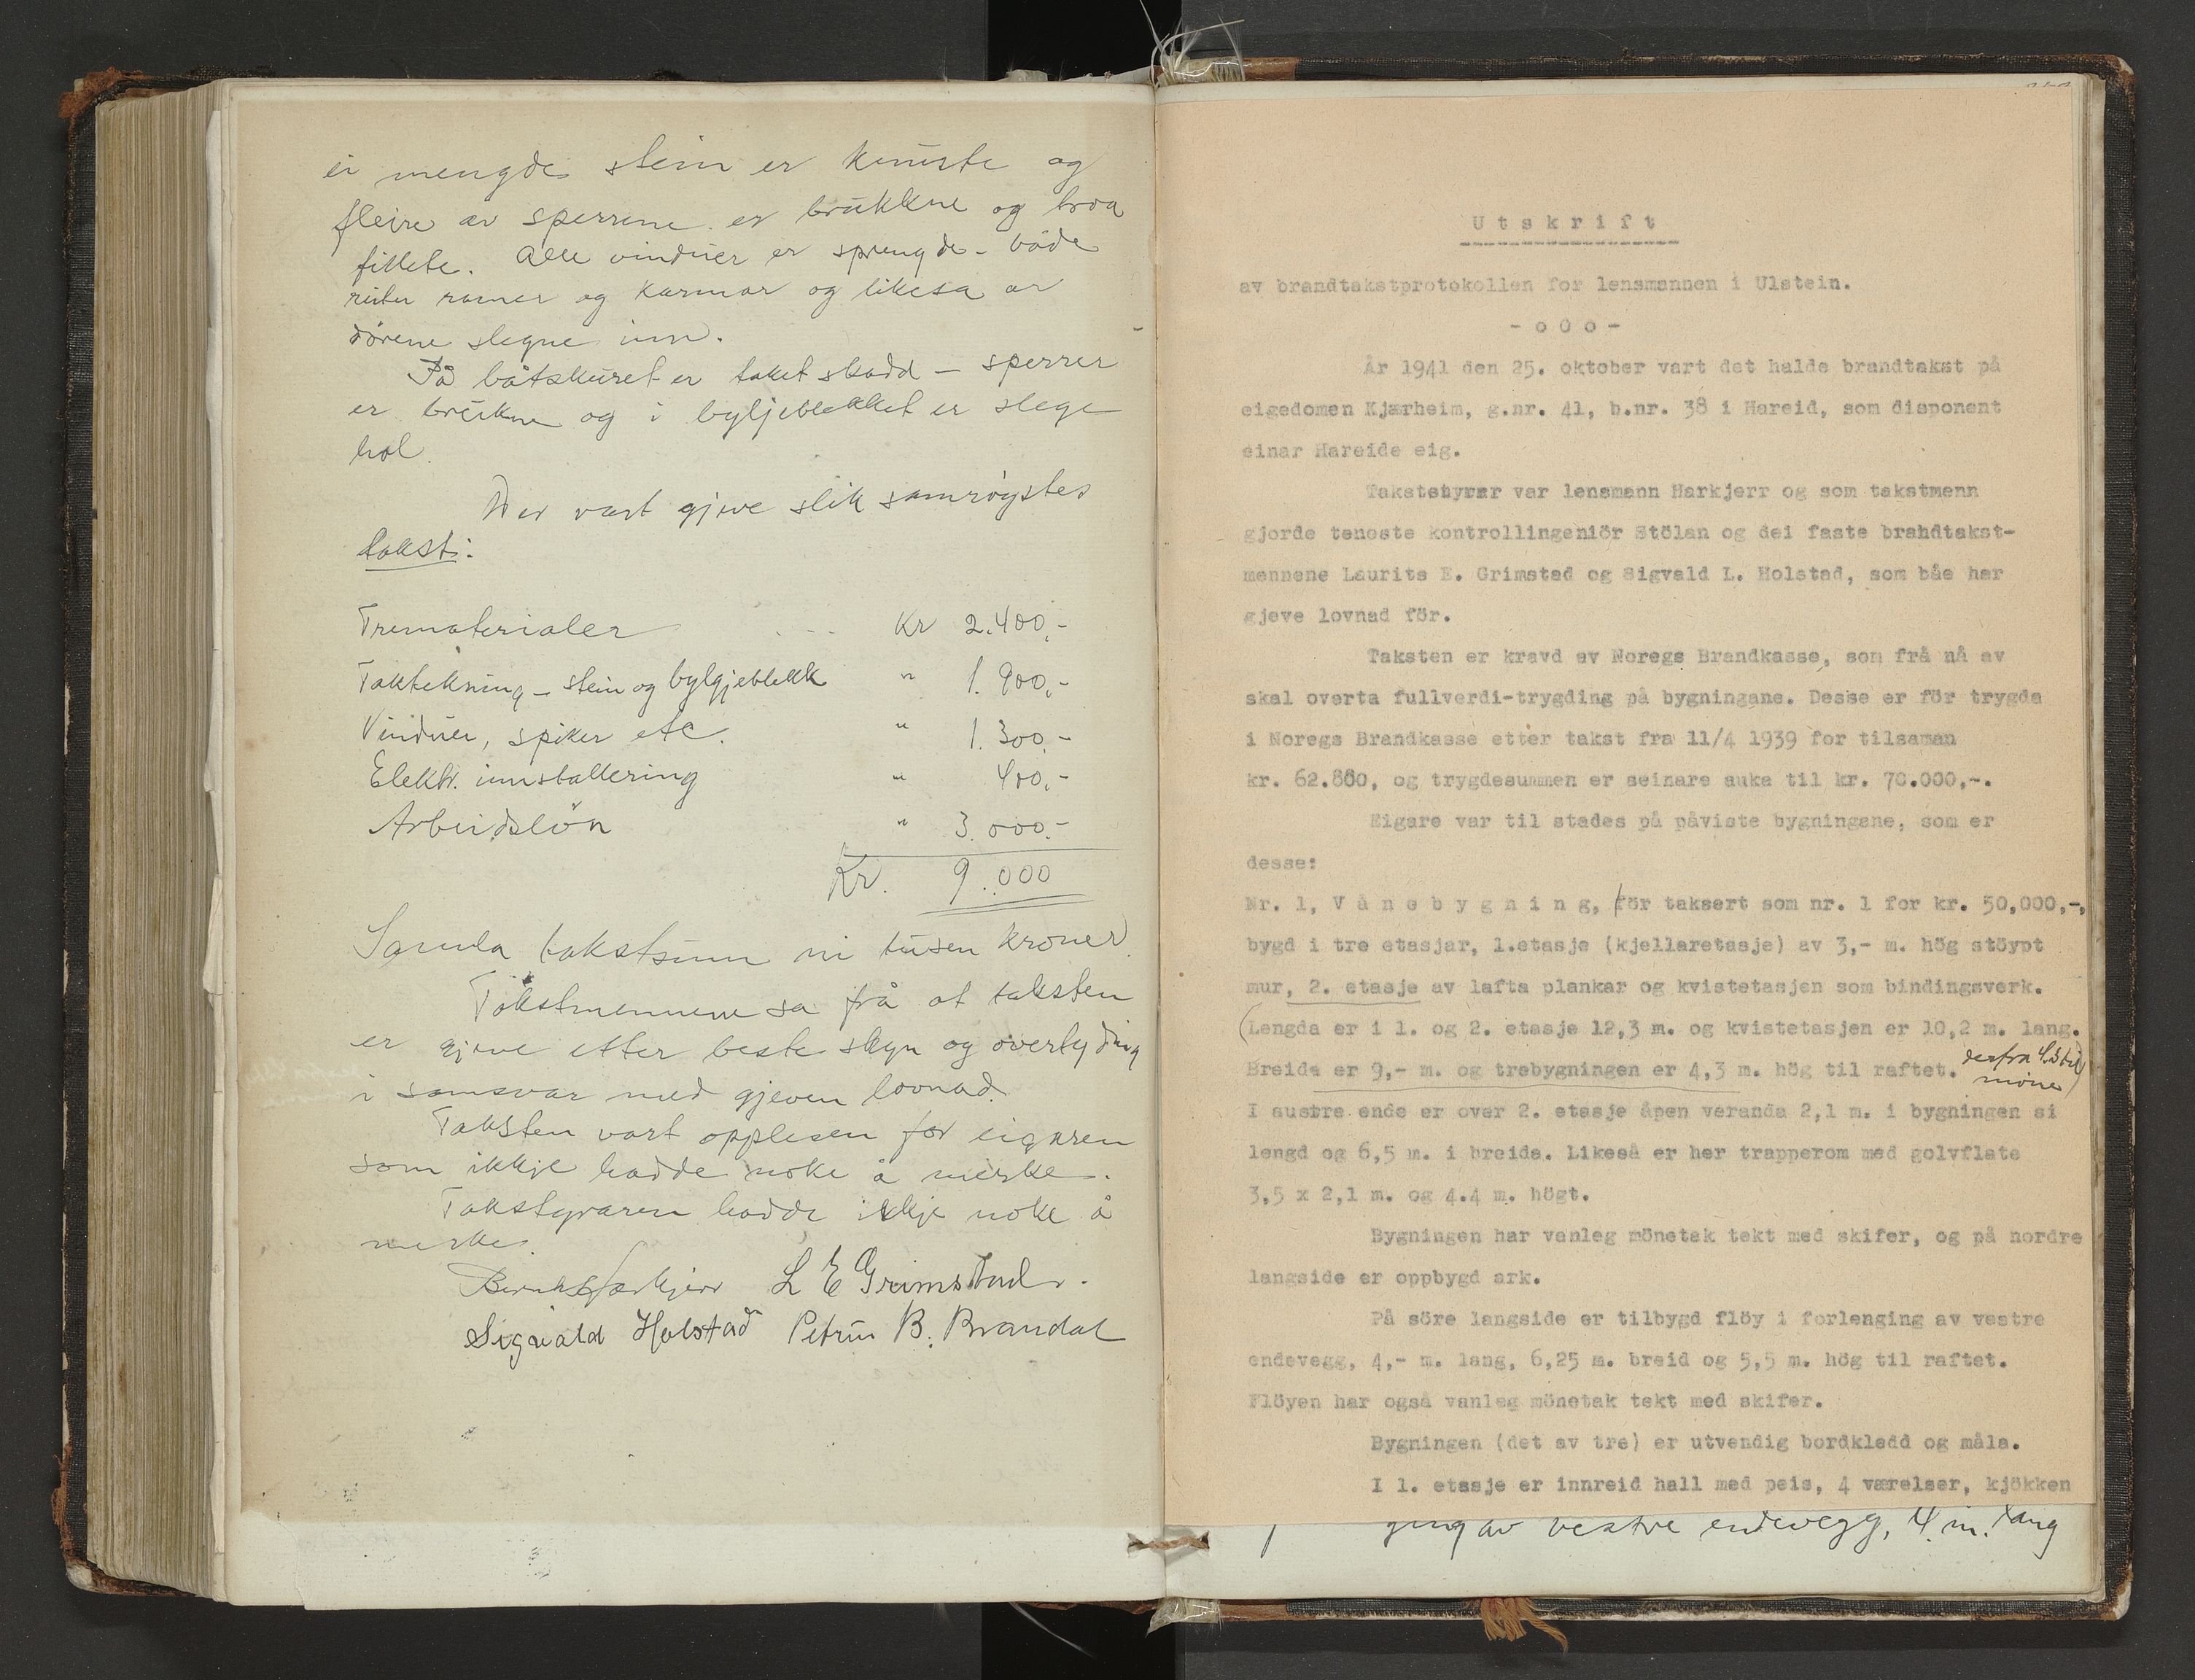 ei mengde stein er knuste og
fleire av sperrene er brukkne og troa
fillete. Alle vinduer er sprengde - både
ruter ramer og karmar og likesa er
dörene slegne inn.
På båtskuret er taket skadd - sperrer
er brukne og i bylgjeblekket er slege
hol.
Der vart gjeve slik samröystes
takst:
Trematerialer ... Kr 2.400,-
Taktekning - stein og bylgjeblekk " 1.900,-
Vinduer, spiker etc. " 1.300,-
Elektr. innstallering " 400,-
Arbeidslön " 3.000.-
Kr. 9.000
Samla takstsum ni tusen kroner
Takstmennene sa frå at taksten
er gjeve etter beste skyn og overtyding
i samsvar med gjeven lovnad.
Taksten vart opplesen for eigaren
som ikkje hadde noke å merke.
Takstyraren hadde ikkje noke å
merke.
Harkjerr L E Grimstad.
Sigvald Holstad Petrin B. Brandal
Utskrift
av brandtakstprotokollen for lensmannen i Ulstein.
- o O o -
År 1941 den 25. oktober vart det halde brandtakst på
eigedomen Kjærheim, g.nr. 41, b.nr. 38 i Hareid, som disponent
einar Hareide eig.
Takststyrar var lensmann Harkjerr og som takstmenn
gjorde teneste kontrollingeniör Stölan og dei faste brahdtakst-
mennene Laurits E. Grimstad og Sigvald L. Holstad, som båe har
gjeve lovnad för.
Taksten er kravd av Noregs Brandkasse, som frå nå av
skal overta fullverdi-trygding på bygningane. Desse er för trygda
i Noregs Brandkasse etter takst fra 11/4 1939 for tilsaman
kr. 62.860, og trygdesummen er seinare auka til kr. 70.000,-.
Eigare var til stades på påviste bygningane, som er
desse:
Nr. 1, V å n e b y g n i n g, för taksert som nr. 1 for kr. 50,000,-,
bygd i tre etasjar, 1.etasje (kjellaretasje) av 3,- m. hög stöypt
mur, 2. etasje av lafta plankar og kvistetasjen som bindingsverk.
(Lengda er i 1. og 2. etasje 12,3 m. og kvistetasjen er 10,2 m. lang.
Breida er 9,- m. og trebygningen er 4,3 m. hög til raftet. derfra 4.3 til
möne)
I austre ende er over 2. etasje åpen veranda 2,1 m. i bygningen si
lengd og 6,5 m. i breida. Likeså er her trapperom med golvflate
3,5 x 2,1 m. og 4.4 m. högt.
Bygningen har vanleg mönetak tekt med skifer, og på nordre
langside er oppbygd ark.
På söre langside er tilbygd flöy i forlenging av vestre
endevegg, 4,- m. lang, 6,25 m. breid og 5,5 m. hög til raftet.
Flöyen har også vanleg mönetak tekt med skifer.
Bygningen (det av tre) er utvendig bordkledd og måla.
I 1. etasje er innreid hall med peis, 4 værelser, kjökken
ging av vestre endevegg, 4 m. lang